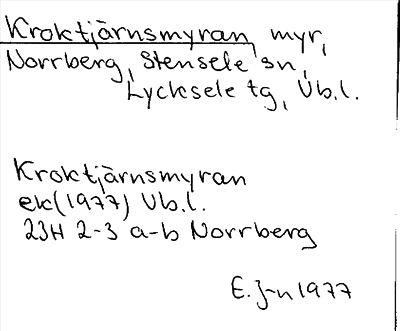 Kroktjärnsmyran myr,
Norrberg, Stensele sn,
Lycksele tg, Vb.l.
Kroktjärnsmyran
ek(1977) Vb.l.
23H 2-3 a-b Norrberg
E. J-n 1977